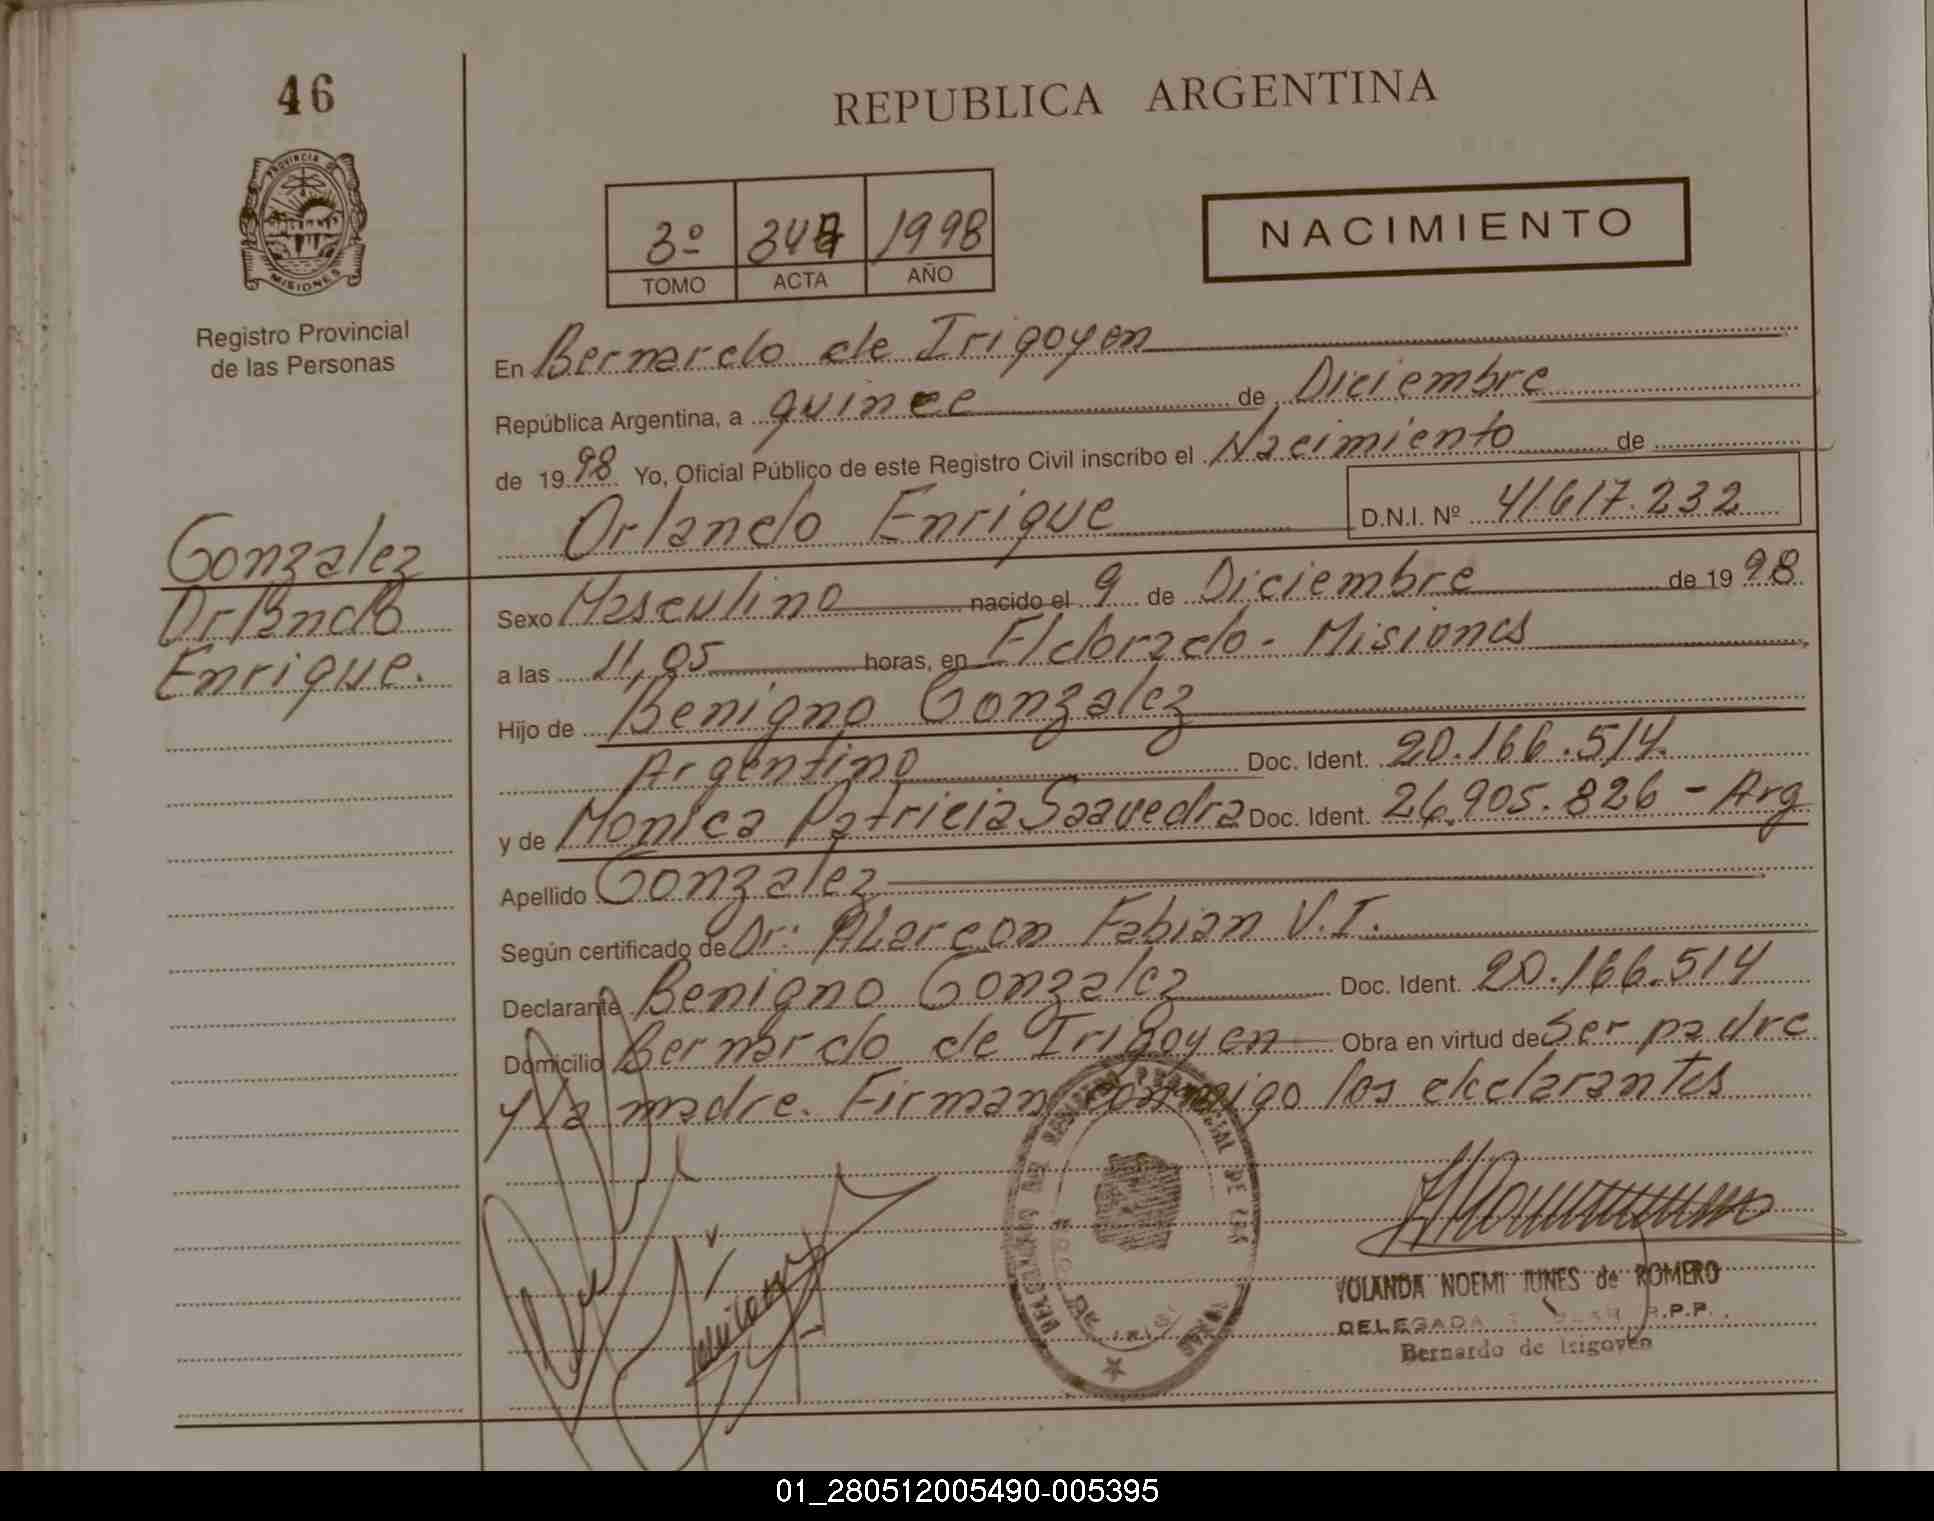 46
REPUBLICA ARGENTINA
PROVINCIA DE
MISIONES
Registro Provincial
de las Personas
3º 1998
TOMO ACTA AÑO
NACIMIENTO
En Bernardo de Irigoyen
República Argentina, a quince de Diciembre
de 1998 Yo, Oficial Público de este Registro Civil inscribo el Nacimiento de
Orlando Enrique D.N.I. Nº 41.617.232
Gonzalez
Orlando
Enrique.
Sexo Masculino nacido el 9 de Diciembre de 1998
a las 11,05 horas, en Eldorado - Misiones
Hijo de Benigno Gonzalez
Argentino Doc. Ident. 20.166.514.
y de Monica Patricia Saavedra Doc. Ident. 26.905.826 - Arg
Apellido Gonzalez
Según certificado de Dr. Alarcon Fabian V.I.
Declarante Benigno Gonzalez Doc. Ident. 20.166.514
Domicilio Bernardo de Irigoyen Obra en virtud de Ser padre
y la madre. Firman conmigo los declarantes
YOLANDA NOEMI IUNES de ROMERO
DELEGADA R.P.P.
Bernardo de Irigoyen
01_280512005490-005395